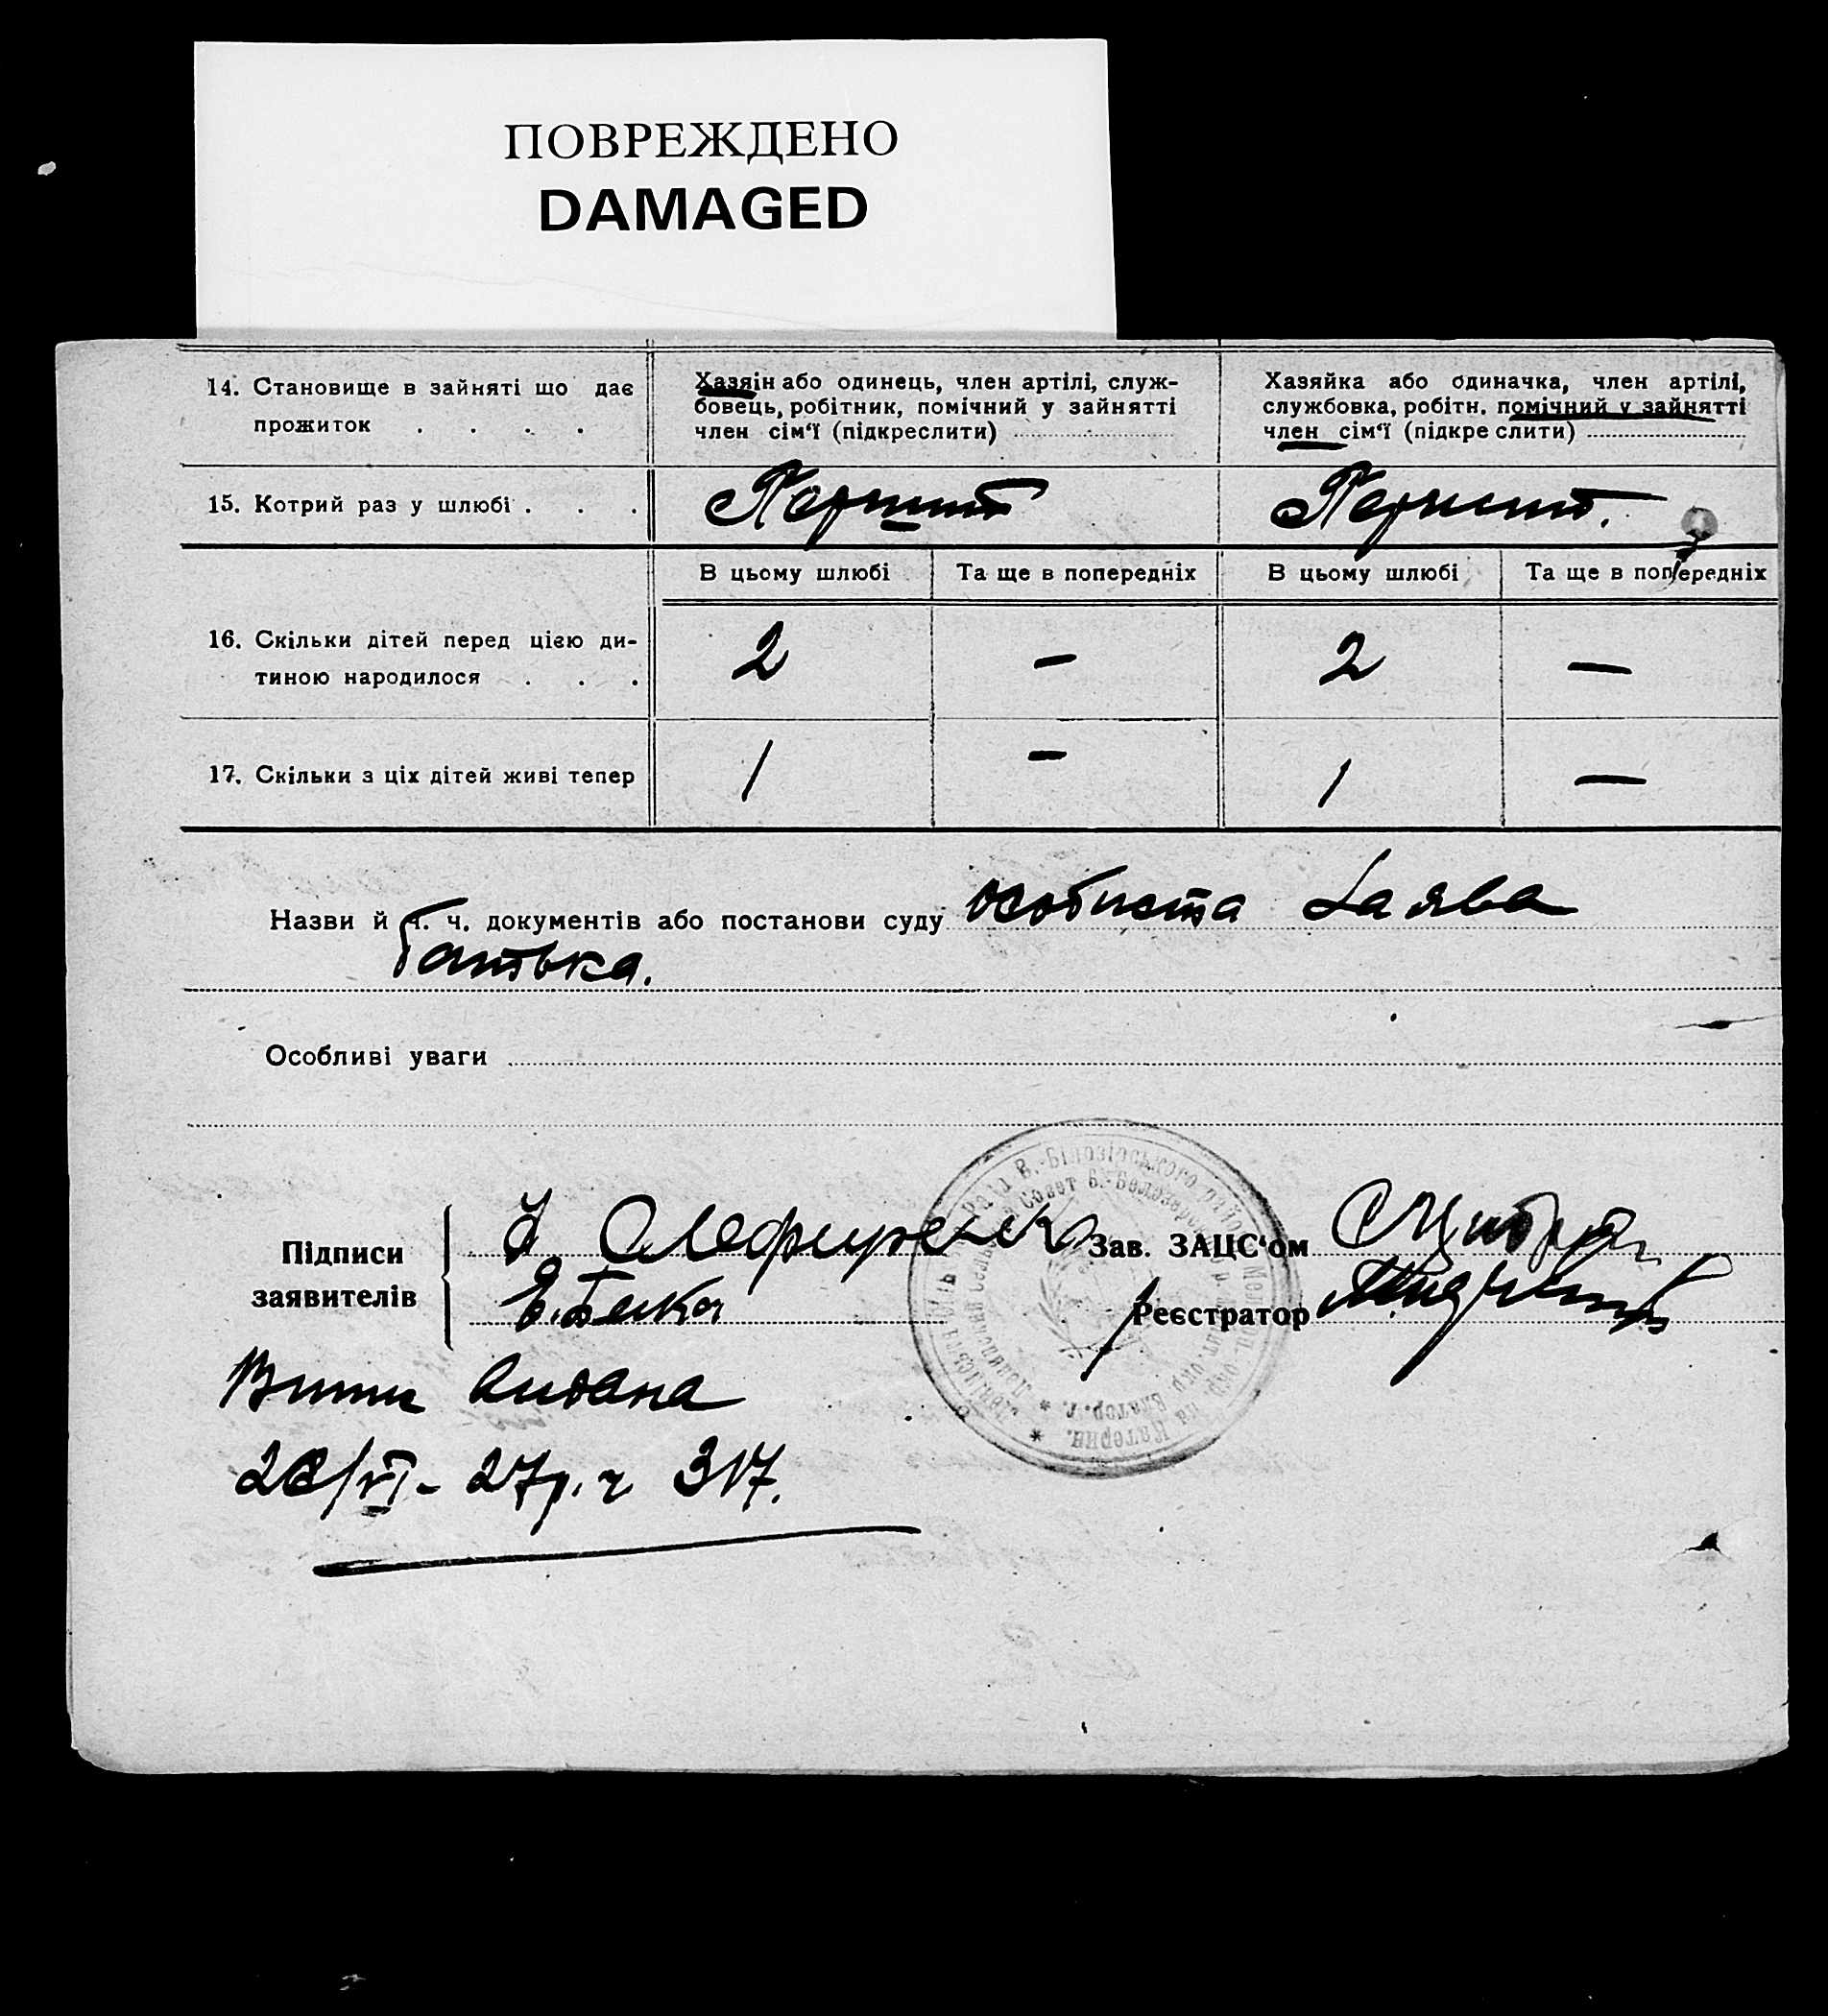 ПОВРЕЖДЕНО
DAMAGED
14. Становище в зайняті що дає
прожиток . . . .
Хазяін або одинець, член артілі, служ-
бовець, робітник, помічний у зайнятті
член сім‘ї (підкреслити)
Хазяйка або одиначка, член артілі,
службовка, робітн. помічний у зайнятті
член сім‘ї (підкре слити)
15. Котрий раз у шлюбі . . .
В цьому шлюбі
Та ще в попередніх
В цьому шлюбі
Та ще в попередніх
16. Скільки дітей перед цією ди-
тиною народилося . . .
2
—
2
—
17. Скільки з ціх дітей живі тепер
1
—
1
—
Назви й ч. ч. документів або постанови суду особиста заява
батька.
Особливі уваги
Підписи
заявителів
Олефиренко
Зав. ЗАЦС‘ом
Реєстратор
видана
/VI - 27р. ч 317.
В.-Білозірського